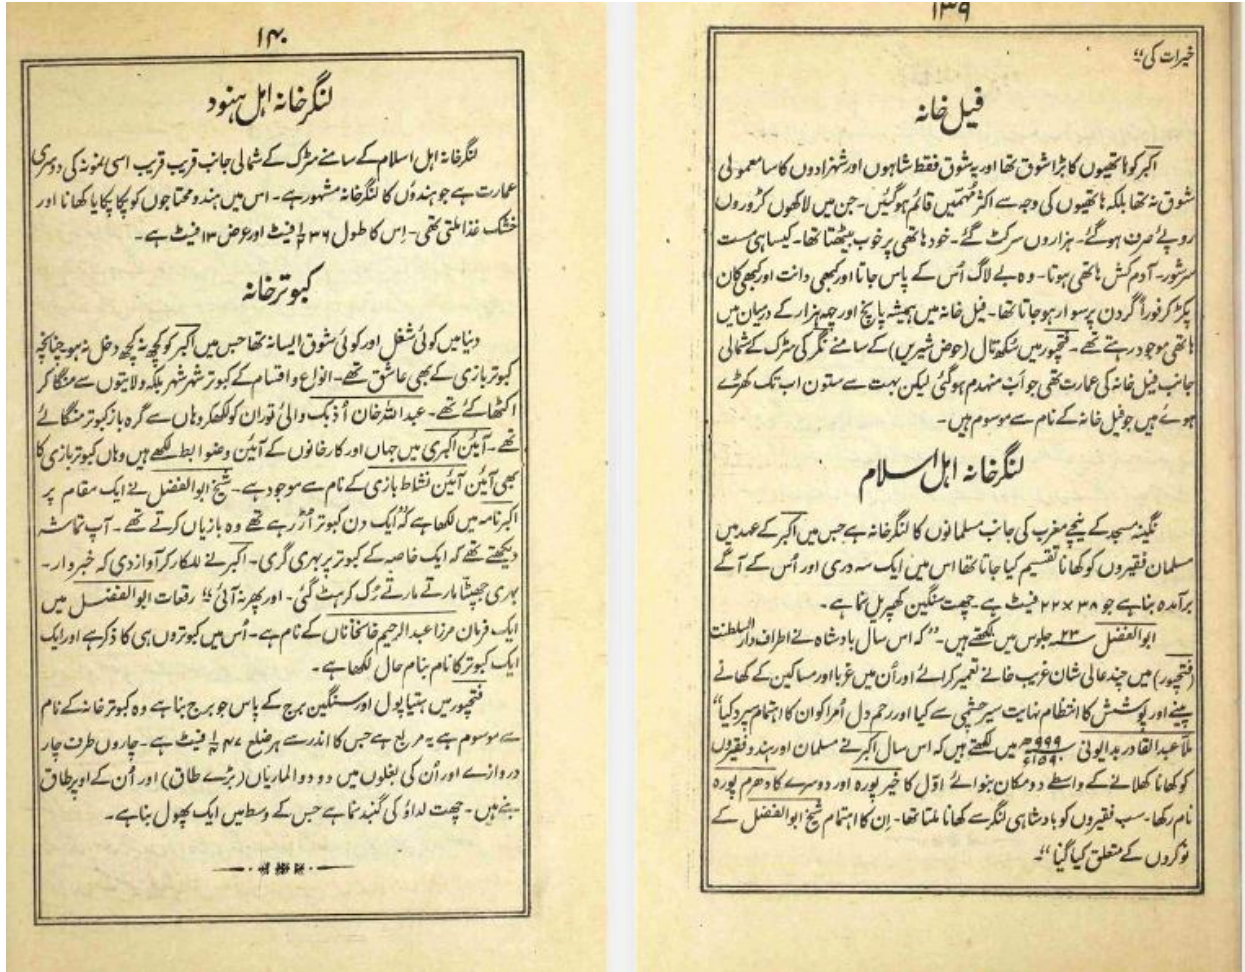 ۱۳۹
خیرات کی"
فیل خانہ
اکبر کو ہاتھیوں کا بڑا شوق تھا اور یہ شوق فقط شاہوں اور شہزادوں کا سا معمولی
شوق نہ تھا بلکہ ہاتھیوں کی وجہ سے اکثر مُہمیں قائم ہوگئیں۔ جن میں لاکھوں کروروں
روپئے صرف ہوگئے۔ ہزاروں سر کٹ گئے۔ خود ہاتھی پر خوب بیٹھتا تھا۔ کیسا ہی مست
سرشور۔ آدم کش ہاتھی ہوتا۔ وہ بے لاگ اُس کے پاس جاتا اور کبھی دانت اور کبھی کان
پکڑ کر فوراً گردن پر سوار ہو جاتا تھا۔ فیل خانہ میں ہمیشہ پانچ اور چھ ہزار کے درمیان میں
ہاتھی موجود رہتے تھے۔ فتحپور میں سُکھ تال (حوض شیریں) کے سامنے نگر کی سڑک کے شمالی
جانب فیل خانہ کی عمارت تھی جو اَب منہدم ہوگئی لیکن بہت سے ستون اب تک کھڑے
ہوئے ہیں جو فیل خانہ کے نام سے موسوم ہیں۔
لنگر خانہ اہل اسلام
نگینہ مسجد کے نیچے مغرب کی جانب مسلمانوں کا لنگر خانہ ہے جس میں اکبر کے عہد میں
مسلمان فقیروں کو کھانا تقسیم کیا جاتا تھا اس میں ایک سہ دری اور اُس کے آگے
برآمدہ بنا ہے جو ۳۸ × ۲۲ فیٹ ہے۔ چھت سنگین کھپریل نما ہے۔
ابوالفضل ۲۳ جلوس میں لکھتے ہیں۔ "کہ اس سال بادشاہ نے اطراف دار السلطنت
(فتحپور) میں چند عالی شان غریب خانے تعمیر کرائے اور اُن میں غربا اور مساکین کے کھانے
پینے اور پوشش کا انتظام نہایت سیر چشمی سے کیا اور رحم دل اُمرا کو ان کا اہتمام سپرد کیا"
ملّا عبدالقادر بدایونی ۹۹۹ھ ۱۵۹۰ء میں لکھتے ہیں کہ اس سال اکبر نے مسلمان اور ہندو فقیروں
کو کھانا کھلانے کے واسطے دو مکان بنوائے اوّل کا خیر پورہ اور دوسرے کا دھرم پورہ
نام رکھا۔ سب فقیروں کو بادشاہی لنگر سے کھانا ملتا تھا۔ اِن کا اہتمام شیخ ابوالفضل کے
نوکروں کے متعلق کیا گیا"۔
۱۴۰
لنگر خانہ اہل ہنود
لنگر خانہ اہل اسلام کے سامنے سڑک کے شمالی جانب قریب قریب اسی نمونہ کی دوسری
عمارت ہے جو ہندؤں کا لنگر خانہ مشہور ہے۔ اس میں ہندو محتاجوں کو پکا پکایا کھانا اور
خشک غذا ملتی تھی۔ اِس کا طول ۳۶ فیٹ اور عرض ۱۳ فیٹ ہے۔
کبوتر خانہ
دنیا میں کوئی شغل اور کوئی شوق ایسا نہ تھا جس میں اکبر کو کچھ نہ کچھ دخل نہ ہو چنانچہ
کبوتر بازی کے بھی عاشق تھے۔ انواع و اقسام کے کبوتر شہر شہر بلکہ ولایتوں سے منگا کر
اکٹھا کئے تھے۔ عبداللہ خان اُذبک والیٔ توران کو لکھکر وہاں سے گرہ باز کبوتر منگائے
تھے۔ آئین اکبری میں جہاں اور کارخانوں کے آئین و ضوابط لکھے ہیں وہاں کبوتر بازی کا
بھی آئین آئین نشاط بازی کے نام سے موجود ہے۔ شیخ ابوالفضل نے ایک مقام پر
اکبر نامہ میں لکھا ہے کہ "ایک دن کبوتر اُڑ رہے تھے وہ بازیاں کرتے تھے۔ آپ تماشہ
دیکھتے تھے کہ ایک خاصہ کے کبوتر پر بہری گری۔ اکبر نے للکار کر آواز دی کہ خبردار۔
بہری جھپٹا مارتے مارتے رُک کر ہٹ گئی۔ اور پھر نہ آئی" رقعات ابوالفضل میں
ایک فرمان مرزا عبدالرحیم خانخاناں کے نام ہے۔ اُس میں کبوتروں ہی کا ذکر ہے اور ایک
ایک کبوتر کا نام بنام حال لکھا ہے۔
فتحپور میں ہتیا پول اور سنگین برج کے پاس جو برج بنا ہے وہ کبوتر خانہ کے نام
سے موسوم ہے یہ مربع ہے جس کا اندر سے ہر ضلع ۴۷ فیٹ ہے۔ چاروں طرف چار
دروازے اور اُن کی بغلوں میں دو دو الماریاں (بڑے طاق) اور اُن کے اوپر طاق
بنے ہیں۔ چھت لداؤ کی گنبد نما ہے جس کے وسط میں ایک پھول بنا ہے۔